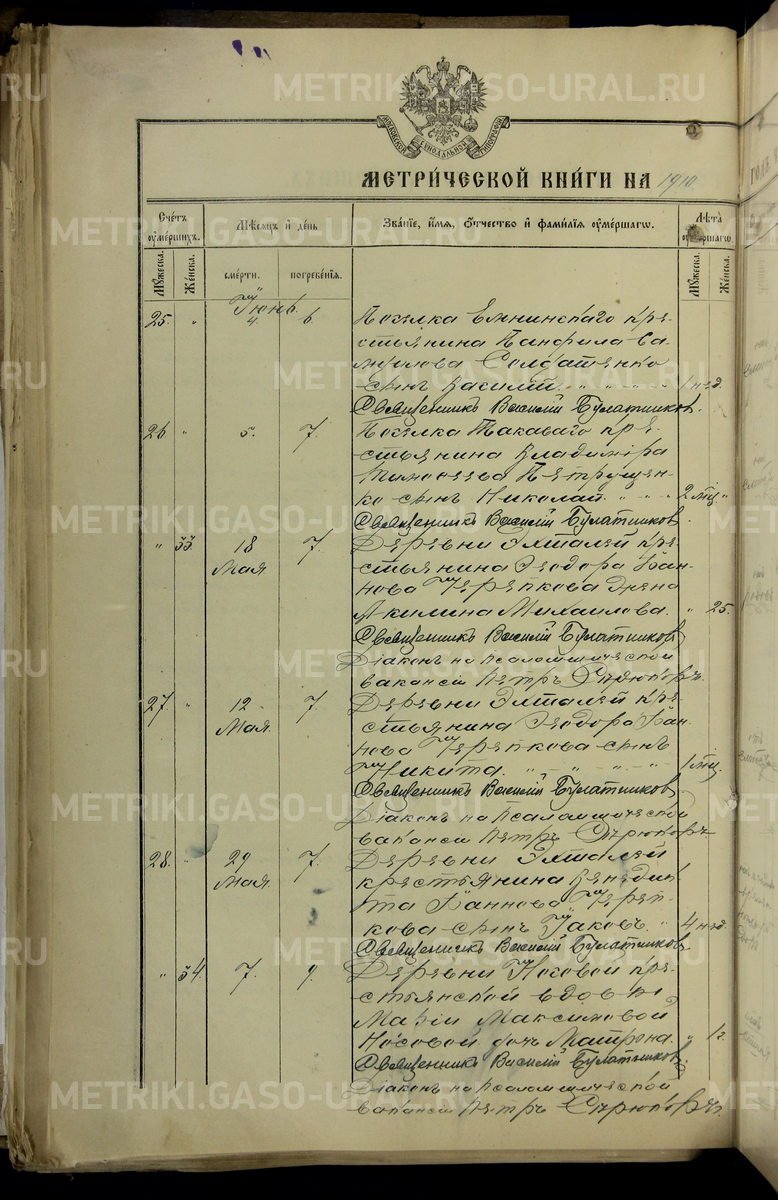 МОСКОВСКОЙ СѴНОДАЛЬНОЙ ТИПОГРАФІИ
МЕТРИ́ЧЕСКОЙ КНИ́ГИ НА 1910
Сче́тъ ᲂуме́ршихъ. Мѣ́сяцъ и҆ де́нь Зва́нїе, и҆́мя, ѻ҆́тчество и҆ фами́лїя ᲂуме́ршагѡ. Лѣ́та ᲂуме́ршагѡ.
Мꙋ́жеска. Же́нска. сме́рти. погребе́нїя. Мꙋ́жеска. Же́нска.
Іюнь.
25. " 4. 6. Поселка Еленинскаго кре-
стьянина Панфила Ва-
Солдатенко
сынъ Василій " " " " 1 нед.
Священникъ Василій Булатников.
26 " 5. 7. Поселка кре-
стьянина Владиміра
Тимофеева Петрущен-
ко сынъ Николай. " " " 2 мѣс. "
Священникъ Василій Булатников.
" 33. 18 Мая 7. Деревни кре-
стьянина Ѳеодора Іоан-
нова Черепкова жена
Акилина Михаилова. " 25.
Священникъ Василій Булатников
Діаконъ на псаломщической
вакансіи Петръ
27 " 12 Мая. 7. Деревни кре-
стьянина Ѳеодора Іоан-
нова Черепкова сынъ
Никита. " " " " " 1 мѣс.
Священникъ Василій Булатников
Діаконъ на псаломщической
вакансіи Петръ
28. " 29 Мая. 7. Деревни
крестьянина Венедик-
та Іоаннова Череп-
кова сынъ Іаковъ. " 4 нед.
Священникъ Василій Булатников
" 34. 7. 9. Деревни Носовой кре-
стьянской вдовы
Маріи Максимовой
Носовой дочь Матрона. "
Священникъ Василій Булатников
Діаконъ на псаломщической
вакансіи Петръ
METRIKI.GASO-URAL.RU